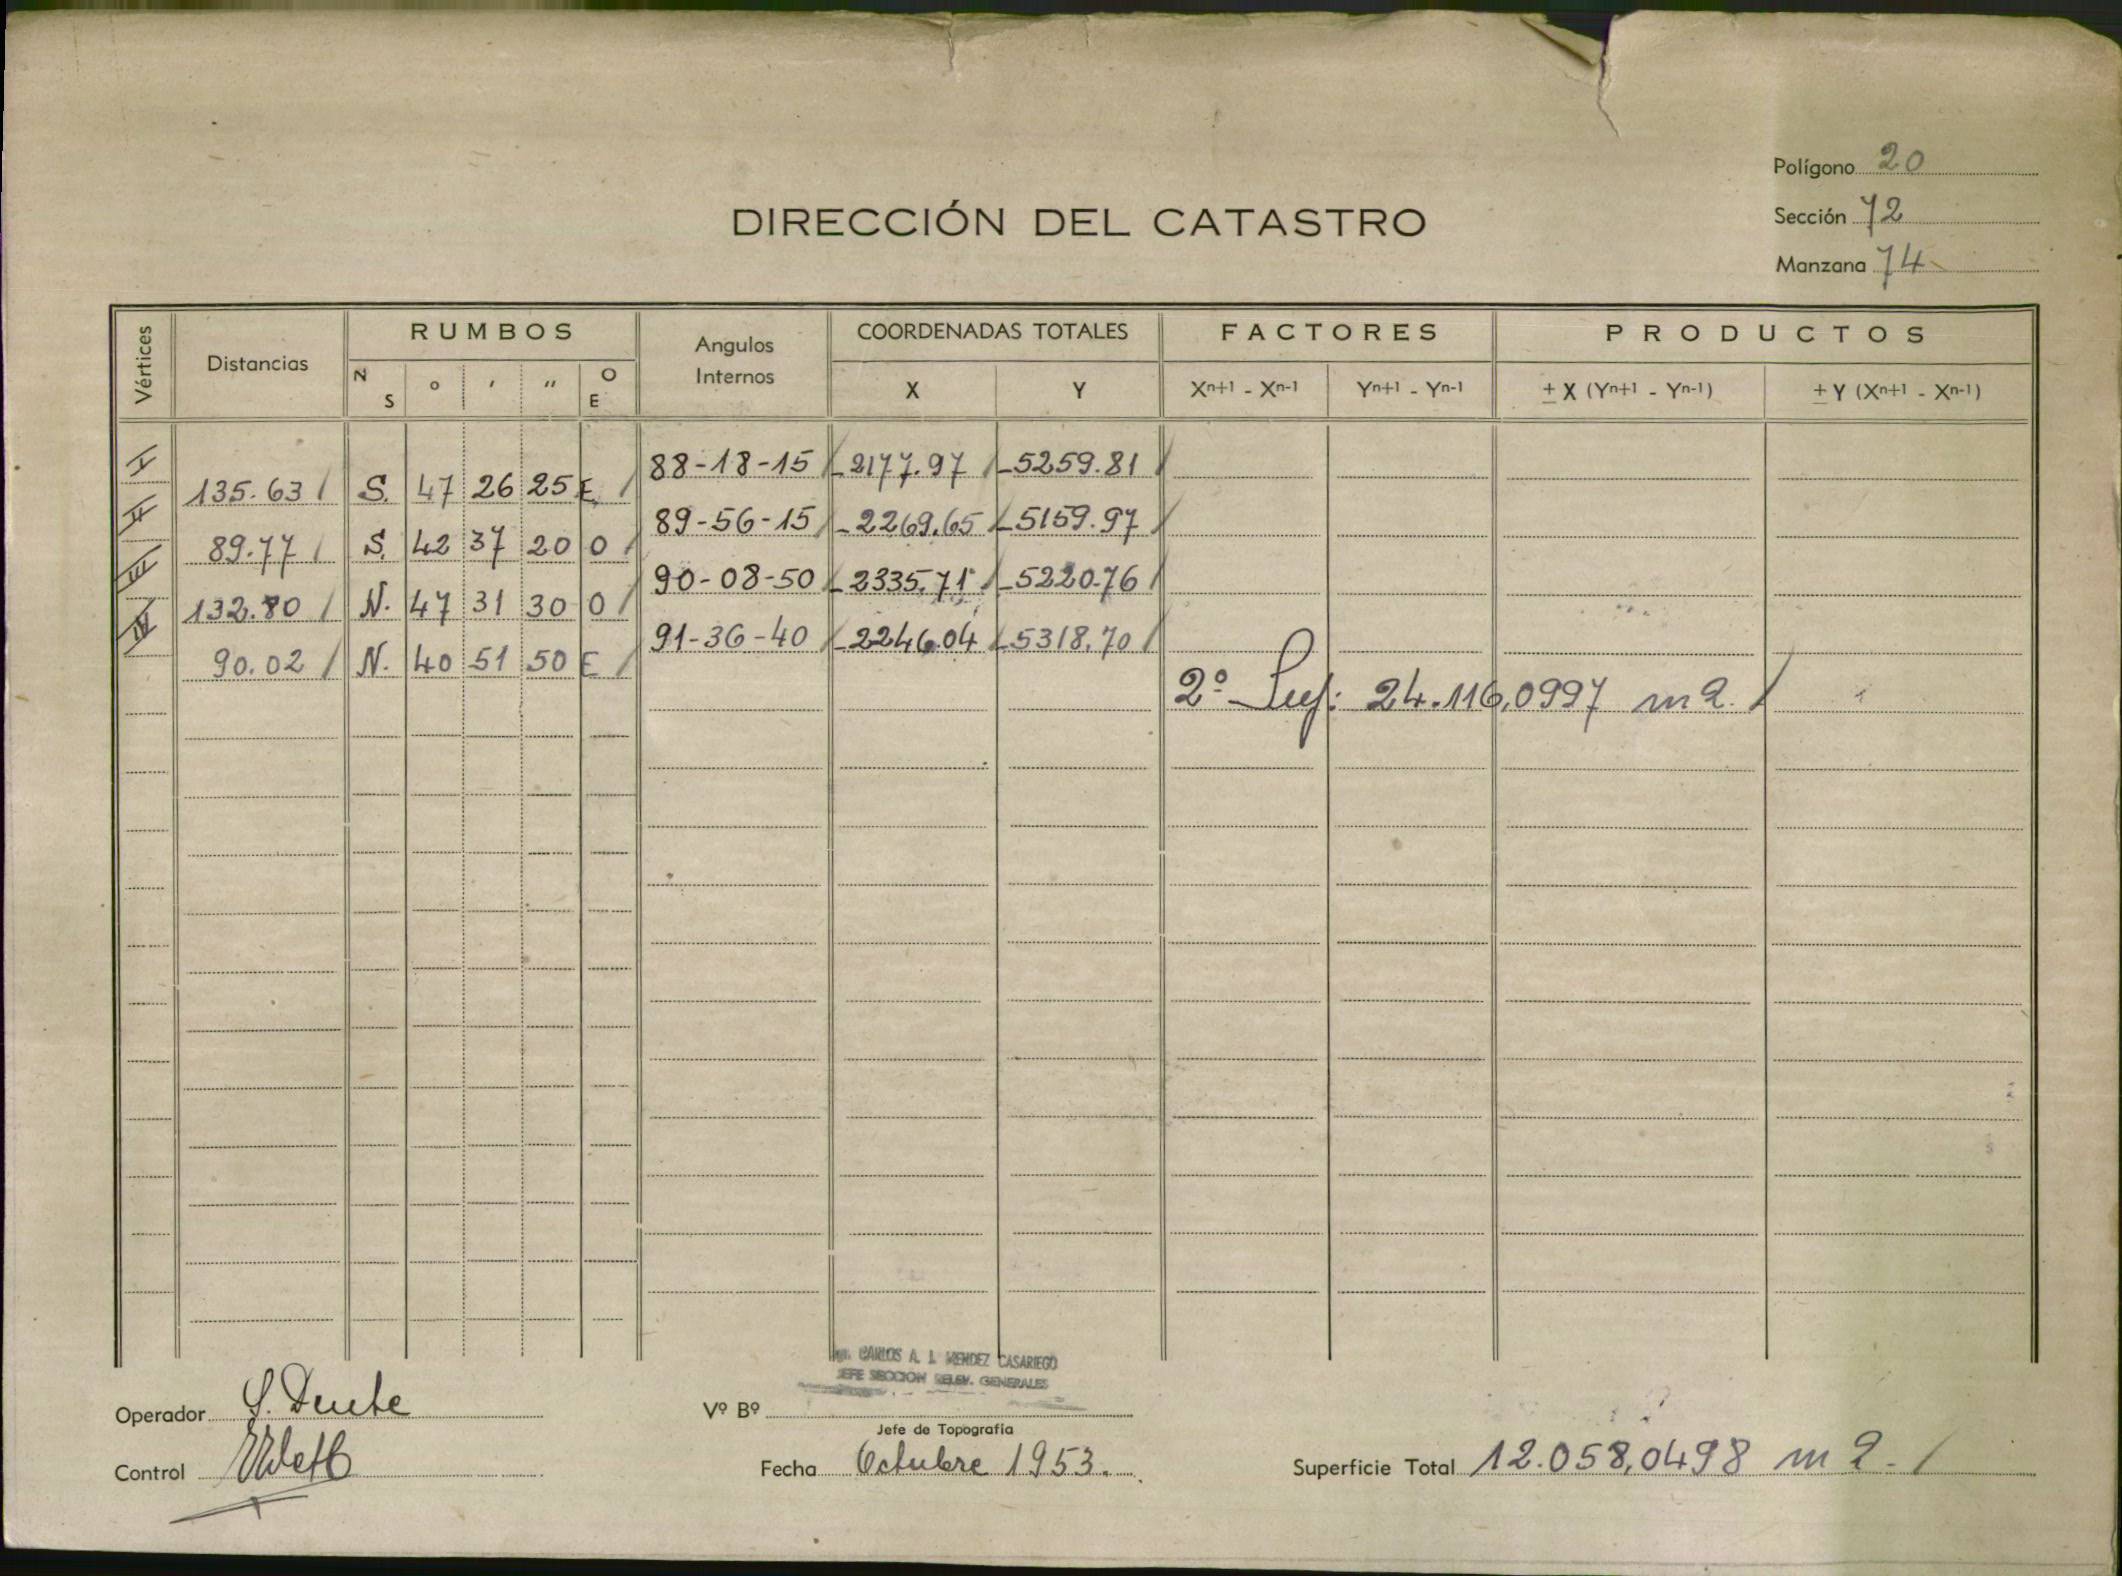 Polígono 20
DIRECCIÓN DEL CATASTRO
Sección 72
Manzana 74
Vértices Distancias RUMBOS Angulos Internos COORDENADAS TOTALES FACTORES PRODUCTOS
N S ° ′ ″ O E X Y Xn+1 - Xn-1 Yn+1 - Yn-1 ± X (Yn+1 - Yn-1) ± Y (Xn+1 - Xn-1)
I 88-18-15 -2177.97 -5259.81
135.63 S. 47 26 25 E.
II 89-56-15 -2269.65 -5159.97
89.77 S. 42 37 20 O
III 90-08-50 -2335.71 -5220.76
132.80 N. 47 31 30 O
IV 91-36-40 -2246.04 -5318.70
90.02 N. 40 51 50 E
2º Sup: 24.116,0997 m2.
CARLOS A. J. MENDEZ CASARIEGO
JEFE SECCION RELEV. GENERALES
Operador
Vº Bº
Jefe de Topografía
Control
Fecha Octubre 1953.
Superficie Total 12.058,0498 m2.